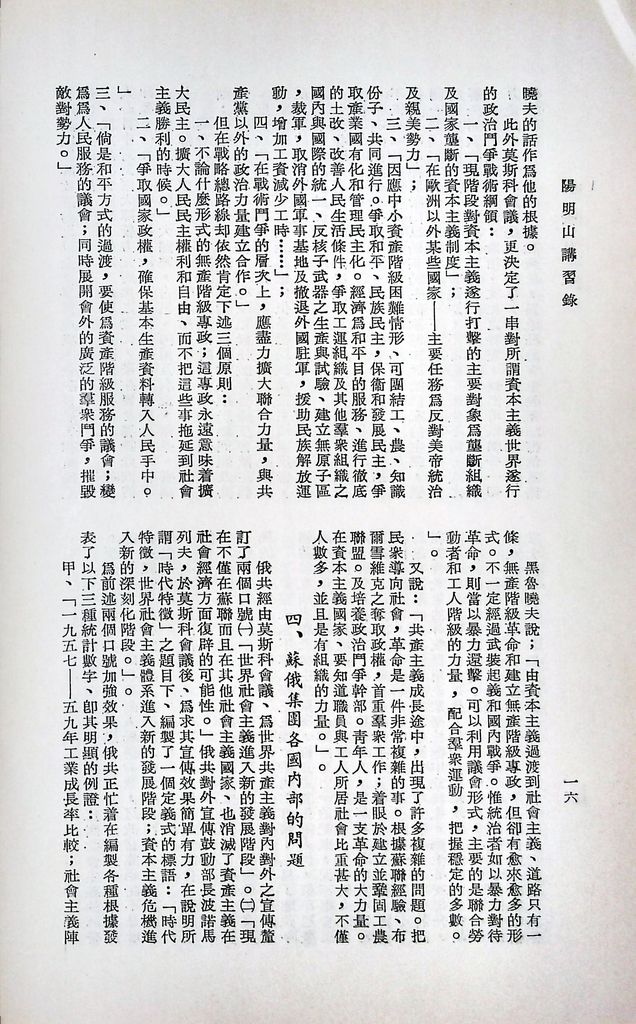 陽明山講習錄
一六
曉夫的話作爲他的根據。
此外莫斯科會議，更決定了一串對所謂資本主義世界逐行
的政治鬥爭戰術綱領：
一、「現階段對資本主義逐行打擊的主要對象爲壟斷組織
及國家壟斷的資本主義制度」；
二、「在歐洲以外某些國家——主要任務爲反對美帝統治
及親美勢力」；
三、「因應中小資產階級困難情形、可團結工、農、知識
份子、共同進行。爭取和平、民族民主，保衞和發展民主，爭
取產業國有化和管理民主化。經濟爲和平目的服務、進行徹底
的土改、改善人民生活條件，爭取工運組織及其他羣衆組織之
國內與國際的統一、反核子武器之生產與試驗、建立無原子區
，裁軍，取消外國軍事基地及撤退外國駐軍，援助民族解放運
動，增加工資減少工時……」；
四、「在戰術鬥爭的層次上，應盡力擴大聯合力量，與共
產黨以外的政治力量建立合作。」
但在戰略總路線却依然肯定下述三個原則：
一、不論什麼形式的無產階級專政；這專政永遠意味着擴
大民主。擴大人民民主權利和自由、而不把這些事拖延到社會
主義勝利的時候。」
二、「爭取國家政權，確保基本生產資料轉入人民手中。
」
三、「倘是和平方式的過渡，要使爲資產階級服務的議會；變
爲爲人民服務的議會；同時展開會外的廣泛的羣衆鬥爭，摧毀
敵對勢力。」
黑魯曉夫說；「由資本主義過渡到社會主義、道路只有一
條，無產階級革命和建立無產階級專政，但卻有愈來愈多的形
式。不一定經過武裝起義和國內戰爭。惟統治者如以暴力對待
革命，則當以暴力還擊。可以利用議會形式，主要的是聯合勞
動者和工人階級的力量，配合羣衆運動，把握穩定的多數。
」。
又說：「共產主義成長途中，出現了許多複雜的問題。把
民衆導向社會，革命是一件非常複雜的事。根據蘇聯經驗、布
爾雪維克之奪取政權，首重羣衆工作；着眼於建立並鞏固工農
聯盟。及培養政治鬥爭幹部。靑年人，是一支革命的大力量。
在資本主義國家、要知道職員與工人所居社會比重甚大，不僅
人數多，並且是有組織的力量。」。
四、蘇俄集團各國內部的問題
俄共經由莫斯科會議、爲世界共產主義對內對外之宣傳釐
訂了兩個口號㈠「世界社會主義進入新的發展階段」。㈡「現
在不僅在蘇聯而且在其他社會主義國家、也消滅了資產主義在
社會經濟方面復辟的可能性。」俄共對外宣傳鼓動部長波諾馬
列夫，於莫斯科會議後、爲求其宣傳效果簡單有力，在說明所
謂「時代特徵」之題目下、編製了一個定義式的標語：「時代
特徵，世界社會主義體系進入新的發展階段；資本主義危機進
入新的深刻化階段。」。
爲前述兩個口號加強效果，俄共正忙着在編製各種根據發
表了以下三種統計數字、卽其明顯的例證：
甲、「一九五七——五九年工業成長率比較；社會主義陣